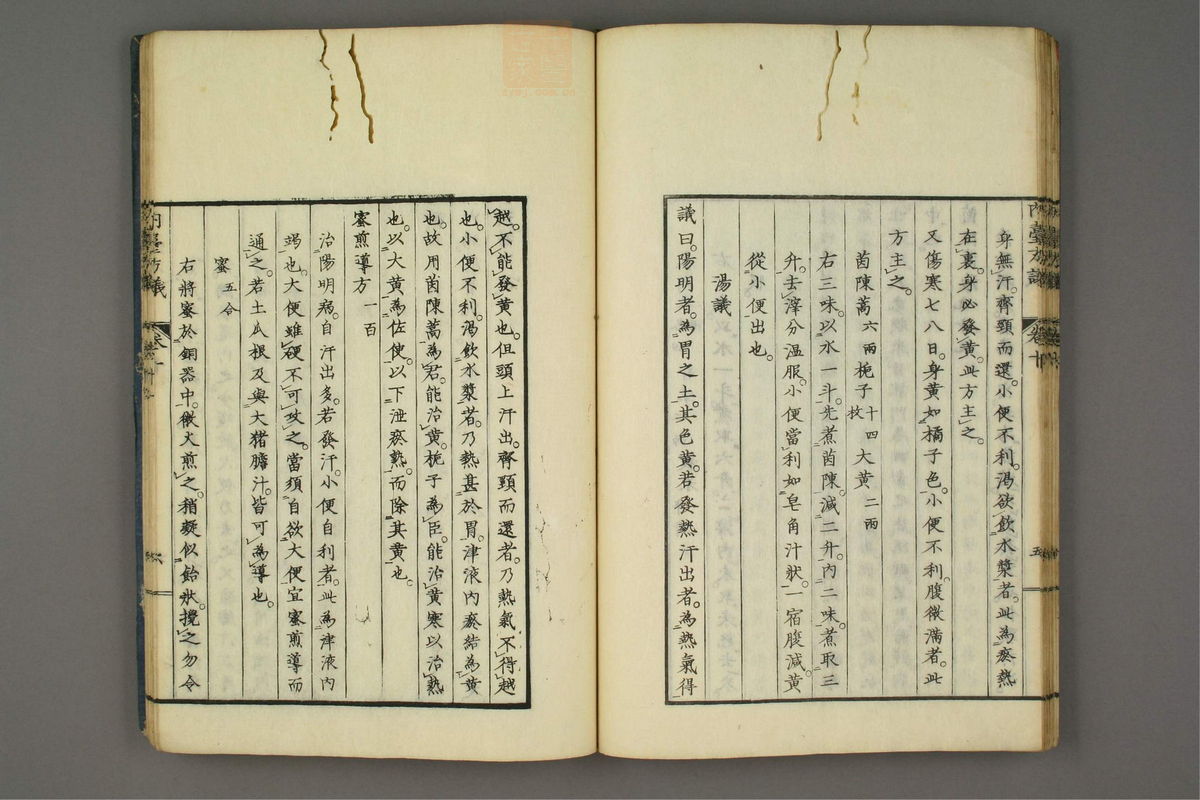 身無汗。齊頸而還。小便不利。渴欲飲水漿者。此為瘀熱
在裏。身必發黃。此方主之。
又傷寒七八日。身黃如橘子色。小便不利。腹微滿者。此
方主之。
茵陳蒿六兩梔子十四枚大黃二兩
右三味。以水一斗。先煮茵陳。減二升。內二味。煮取三
升。去滓。分溫服。小便當利如皂角汁狀。一宿腹減。黃
從小便出也。
湯議
議曰。陽明者。為胃之土。其色黃。若發熱汗出者。為熱氣得
越。不能發黃也。但頭上汗出。齊頸而還者。乃熱氣不得越
也。小便不利。渴飲水漿者。乃熱甚於胃。津液內瘀結為黃
也。故用茵陳蒿為君。能治黃。梔子為臣。能治黃寒以治熱
也。以大黃為佐使。以下泄瘀熱。而除其黃也。
蜜煎導方 一百
治陽明病。自汗出多。若發汗。小便自利者。此為津液內
竭也。大便雖硬。不可攻之。當須自欲大便。宜蜜煎導而
通之。若土瓜根及與大猪膽汁。皆可為導也。
蜜五合
右將蜜於銅器中。微火煎之。稍凝似飴狀。攪之勿令